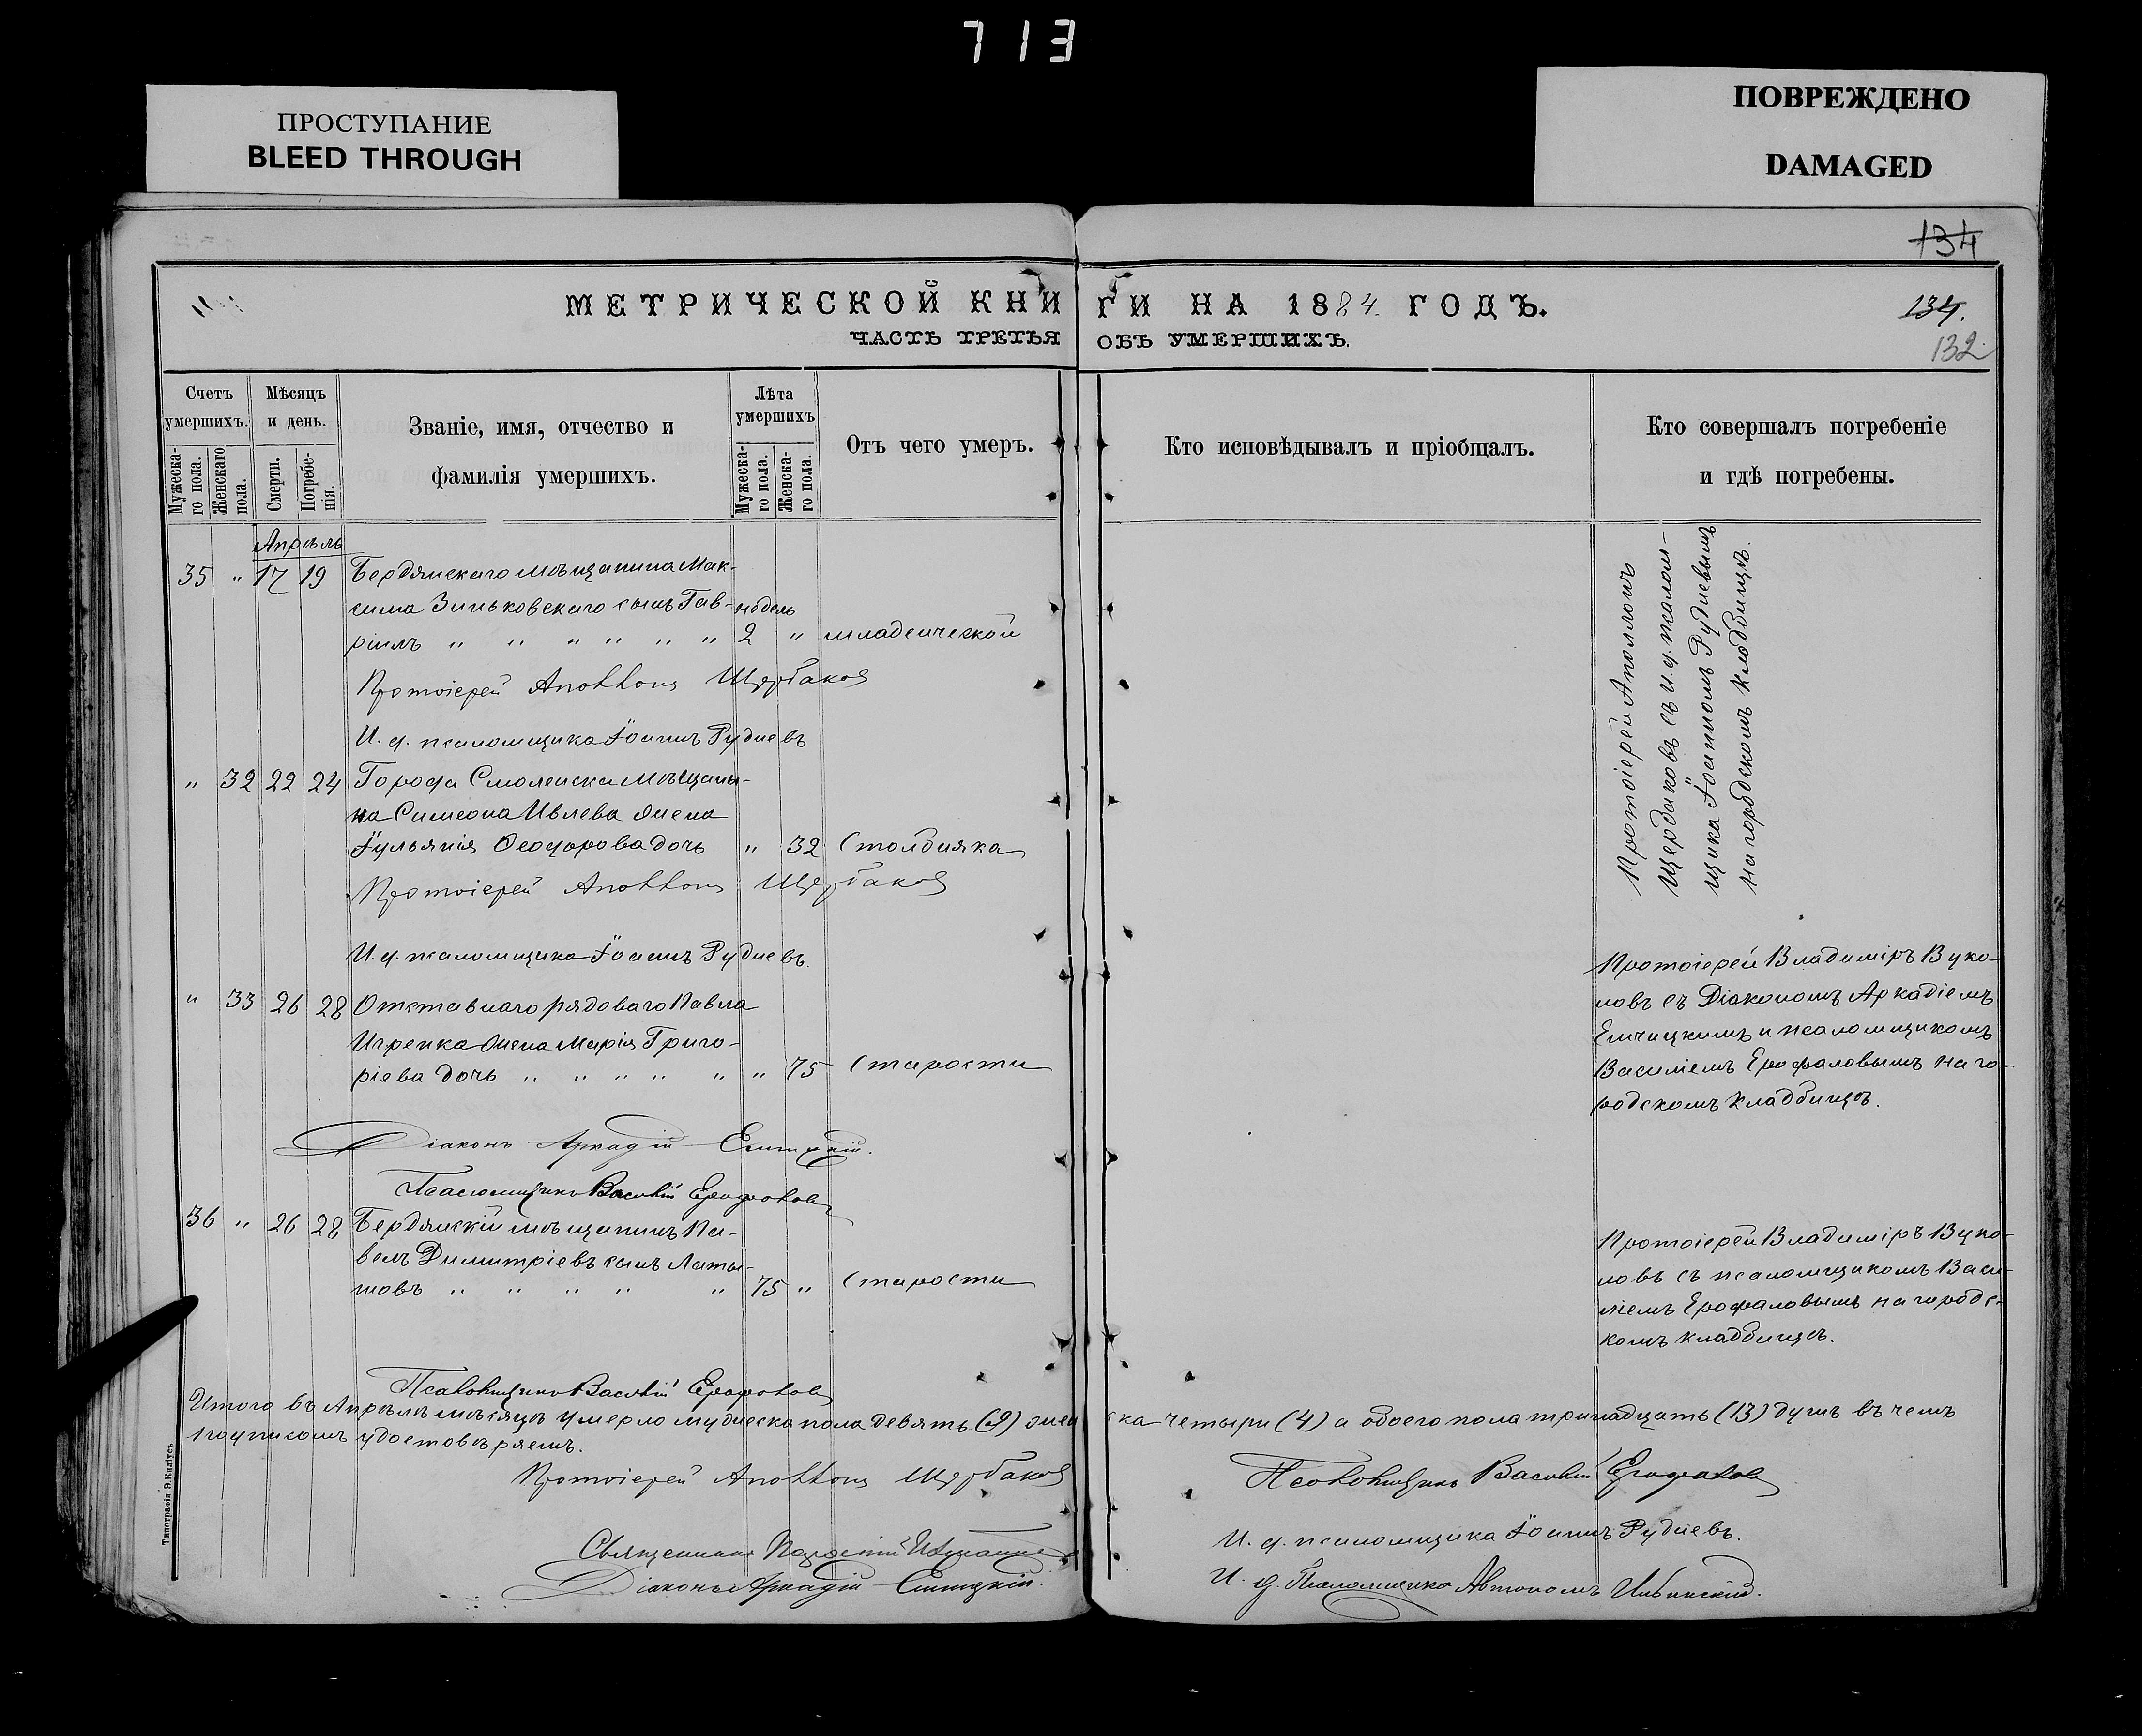 713
ПРОСТУПАНИЕ
BLEED THROUGH
ПОВРЕЖДЕНО
DAMAGED
134
МЕТРИЧЕСКОЙ КНИГИ НА 1884 ГОДЪ.
134.
ЧАСТЬ ТРЕТЬЯ ОБЪ УМЕРШИХЪ.
132
Счетъ умершихъ.
Мужескаго пола.
Женскаго пола.
Мѣсяцъ и день.
Смерти.
Погребенія.
Званіе, имя, отчество и
фамилія умершихъ.
Лѣта умершихъ
Мужескаго пола.
Женскаго пола.
Отъ чего умеръ.
Кто исповѣдывалъ и пріобщалъ.
Кто совершалъ погребеніе
и гдѣ погребены.
Апрѣль
35 " 17 19 Бердянскаго мѣщанина Мак-
сима Зиньковскаго сынъ Гав- недѣль
ріилъ " " " " " " 2 " младенческой
Протоіерей Аполлонъ Щербаковъ
И. д. псаломщика Іоаннъ Рудневъ
Протоіерей Аполлонъ
Щербаковъ съ и. д. псалом-
щика Іоанномъ Рудневымъ
на городскомъ кладбищѣ.
" 32 22 24 Города Смоленска мѣщани-
на Симеона Ивлева жена
Іульянія Ѳеодорова дочь " 32 Столбняка
Протоіерей Аполлонъ Щербаковъ
И. д. псаломщика Іоаннъ Рудневъ.
" 33 26 28 Отставнаго рядоваго Павла
Игренка жена Марія Григо-
ріева дочь " " " " " " 75 Старости
Діаконъ Аркадій
Псаломщикъ Василій Ерофаловъ
Протоіерей Владиміръ Вуко-
ловъ съ Діакономъ Аркадіемъ
и псаломщикомъ
Василіемъ Ерофаловымъ на го-
родскомъ кладбищѣ.
36 " 26 28 Бердянскій мѣщанинъ Па-
велъ Димитріевъ сынъ Латы-
шовъ " " " " " 75 " Старости
Псаломщикъ Василій Ерофаловъ
Протоіерей Владиміръ Вуко-
ловъ съ псаломщикомъ Васи-
ліемъ Ерофаловымъ на городс-
комъ кладбищѣ.
Итого въ Апрѣлѣ мѣсяцѣ умерло мужеска пола девять (9) женска четыри (4) а обоего пола тринадцать (13) душъ въ чемъ
подписомъ удостовѣряемъ.
Протоіерей Аполлонъ Щербаковъ
Псаломщикъ Василій Ерофаловъ
Священникъ
И. д. псаломщика Іоаннъ Рудневъ.
Діаконъ Аркадій
И. д. Псаломщика Автономъ Ильинскій.
Типографія Э. Килиусъ